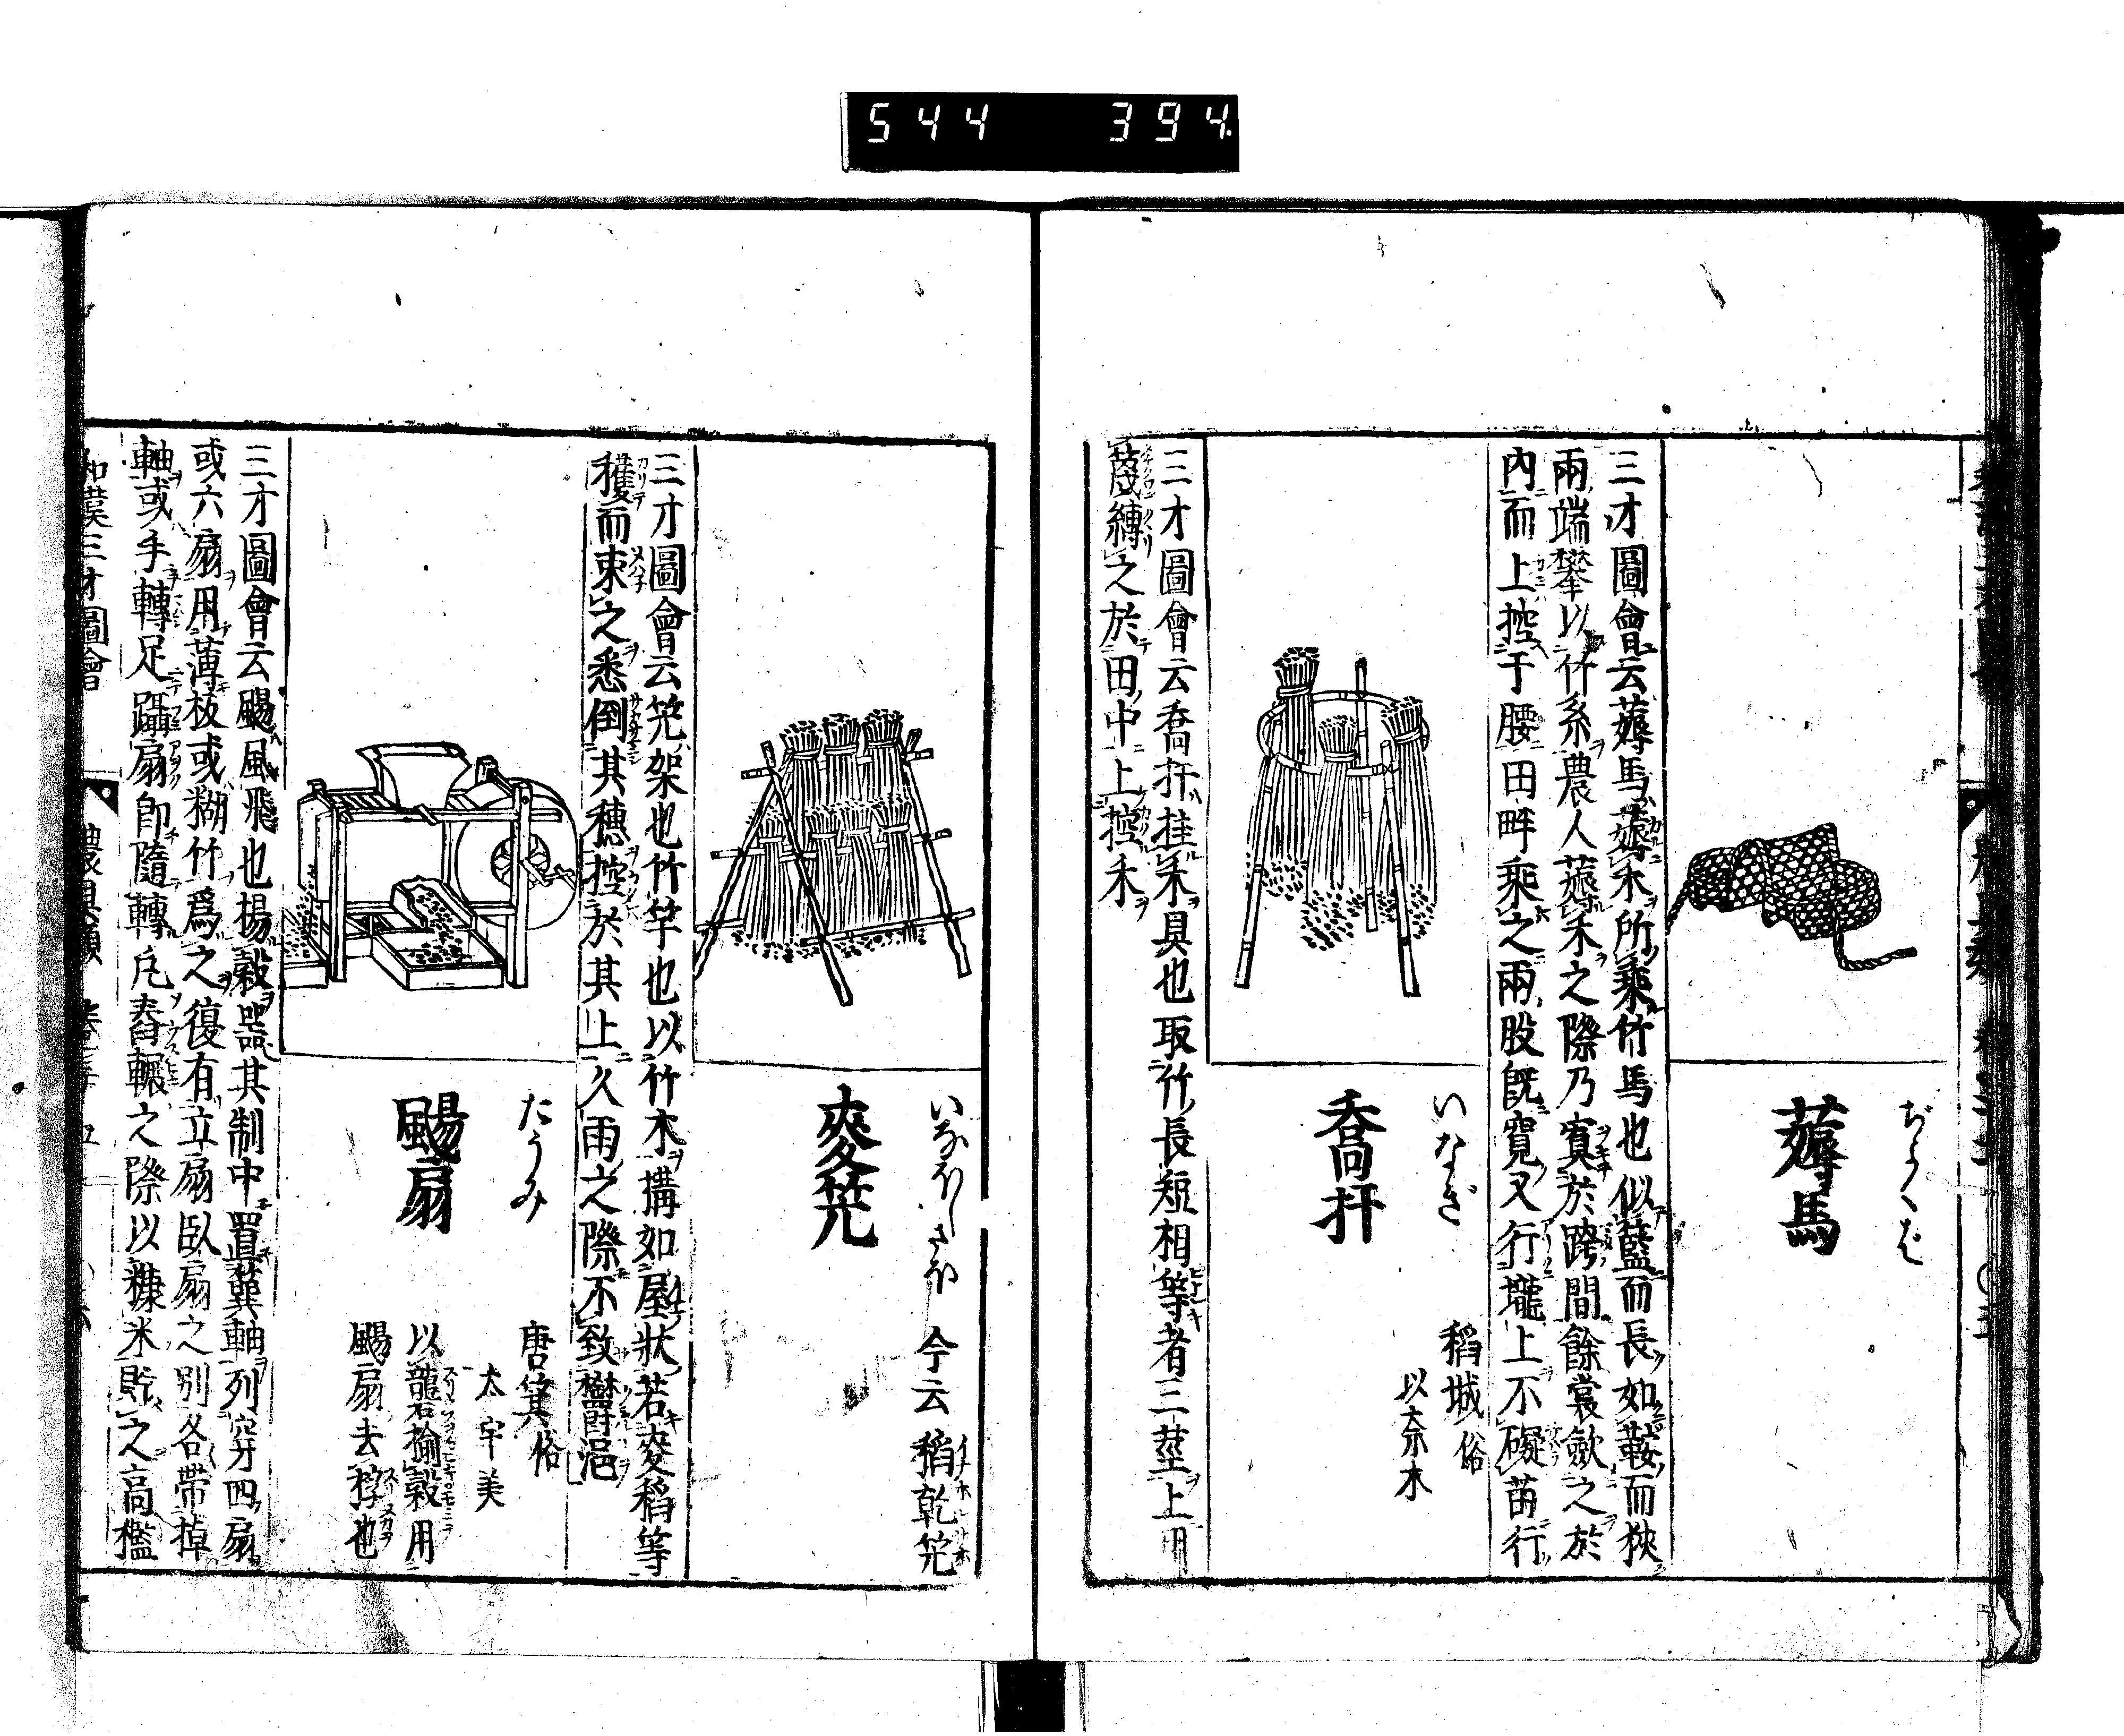 544 394
薅馬
三才圖會云薅馬薅禾所乘竹馬也似籃而長如鞍而狹
兩端攀以竹系農人薅禾之際乃寘於跨間餘裳斂之於
內而上控于腰田畔乘之兩股既寛又行壠上不礙苗行
いなぎ
喬扦
稻城俗
以奈木
三才圖會云喬扦挂禾具也取竹長短相等者三莖上用
篾縛之於田中上控禾
今云稻乾笐
麥笐
三才圖會云笐架也竹竿也以竹木搆如屋狀若麥稻等
穫而束之悉倒其穗控於其上久雨之際不致欝浥
たうみ
颺扇
唐箕俗
太宇美
以礱磨揄穀用
颺扇去稃也
三才圖會云颺風飛也揚穀噐其制中置簨軸列穿四扇
或六扇用薄板或糊竹爲之復有立扇臥扇之別各帶掉
軸或手轉足躡扇即隨轉凡舂輾之際以糠米貯之高檻
和漢三才圖會 農具類